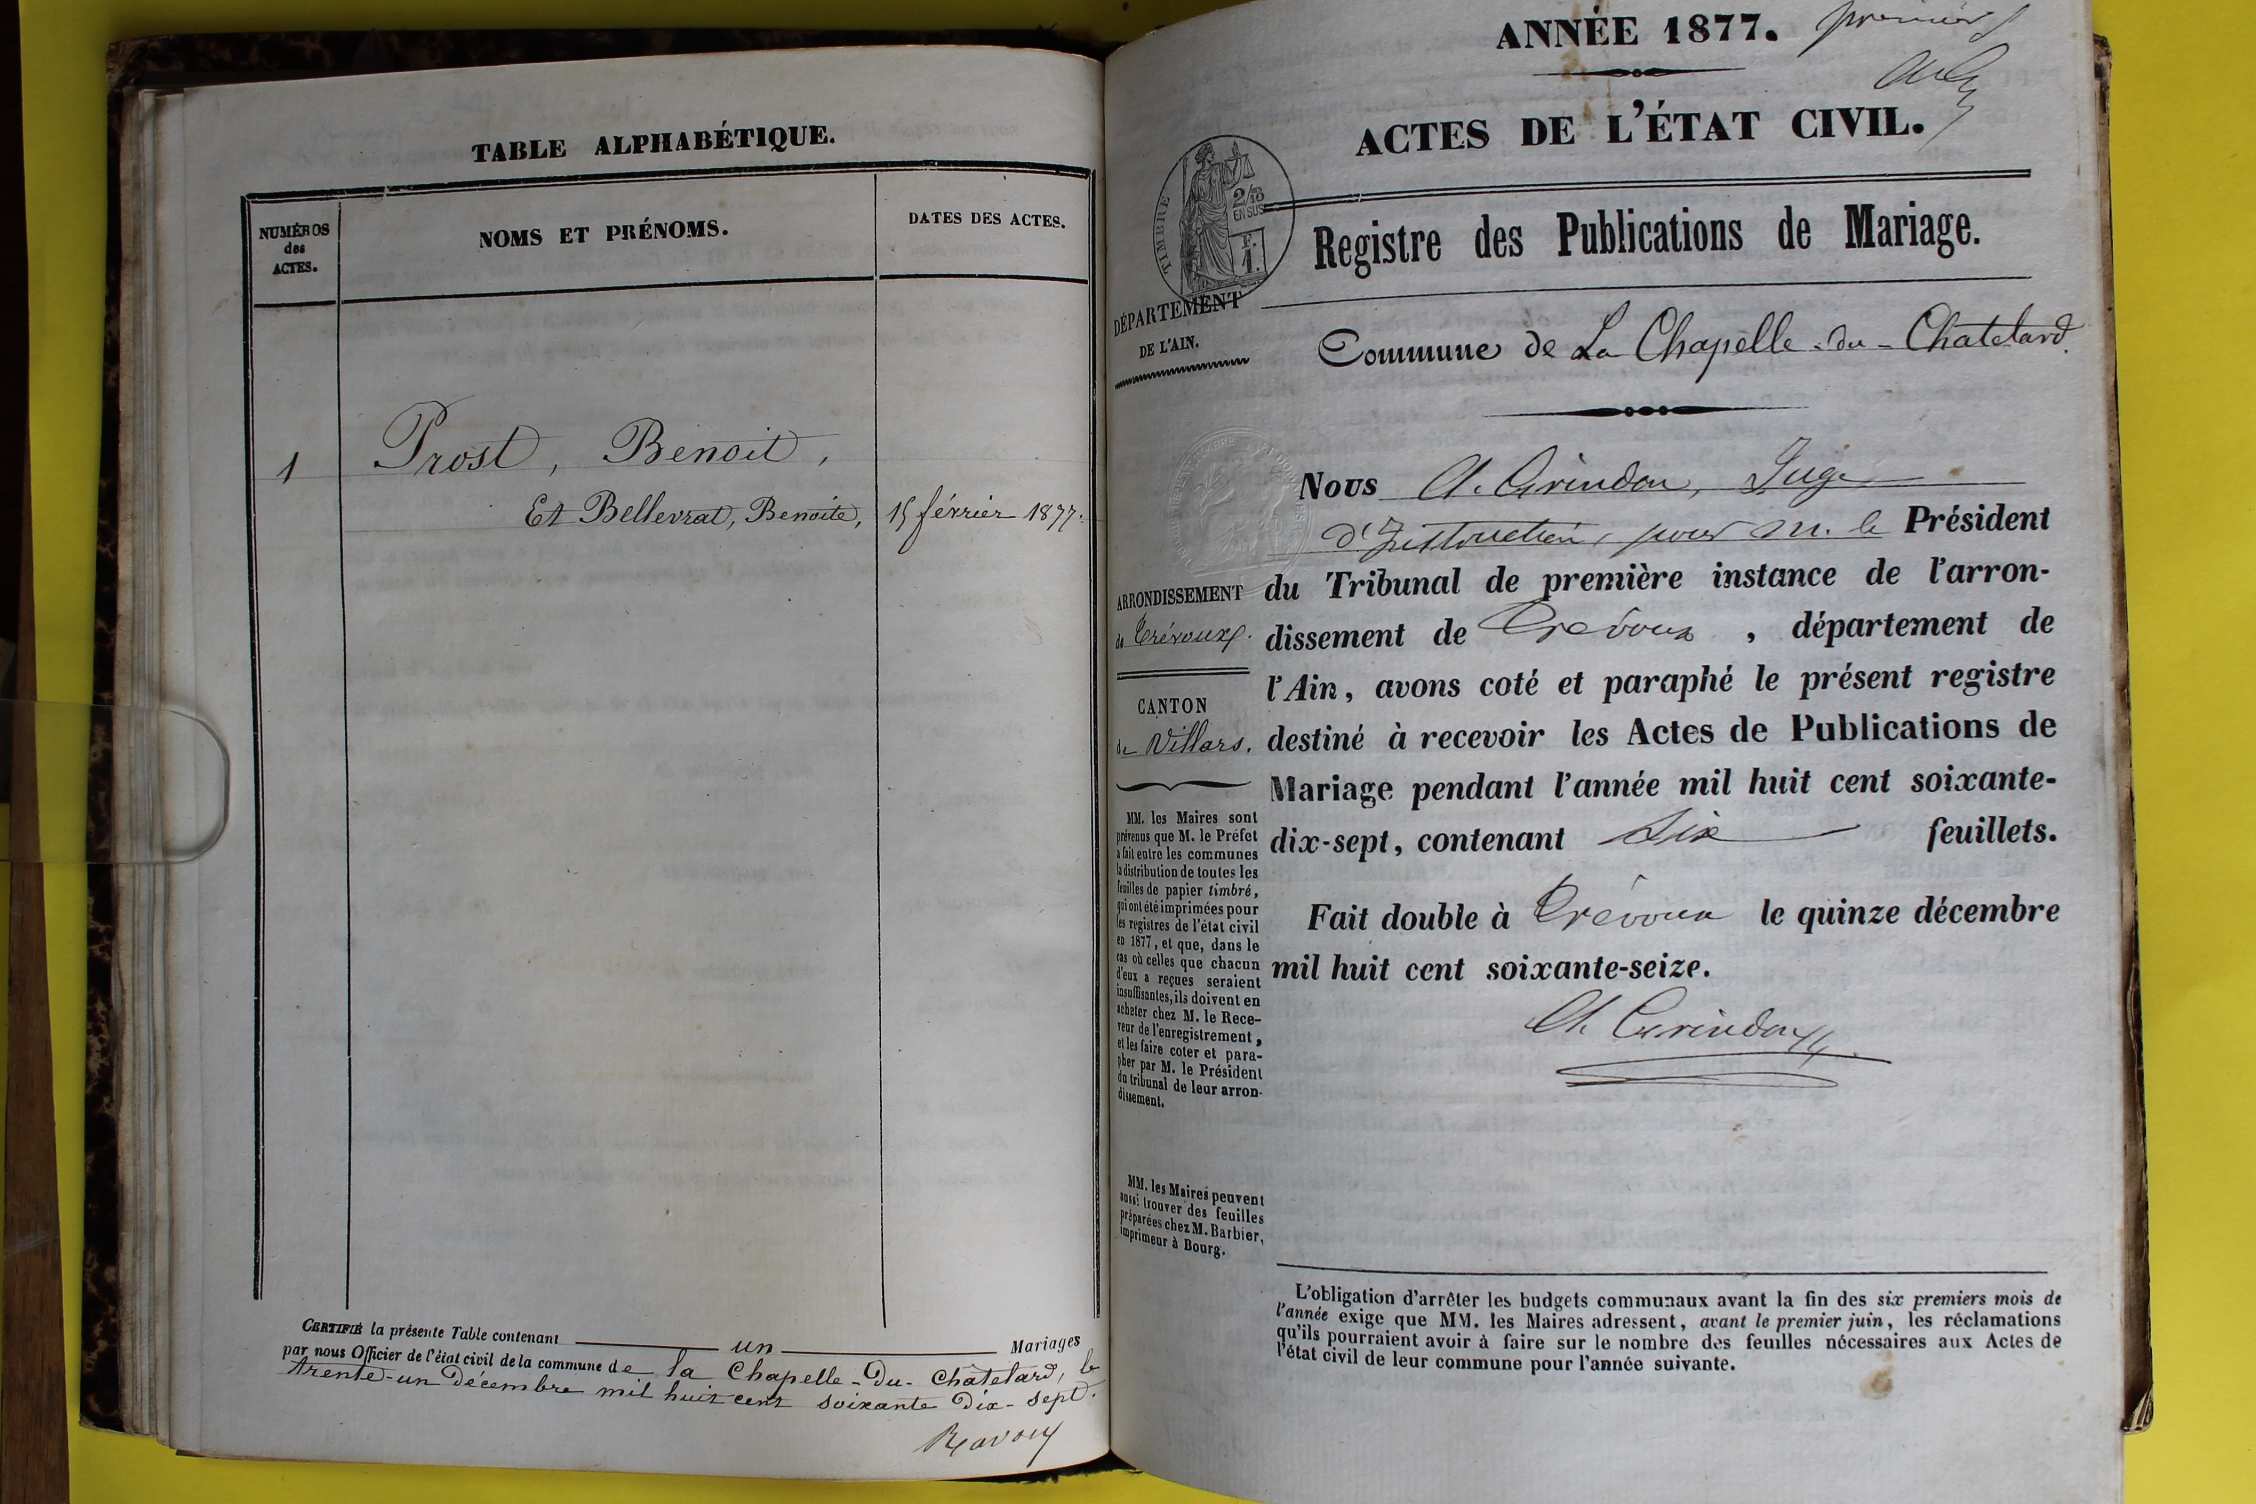 TABLE ALPHABÉTIQUE.
NUMÉROS
des
ACTES.
NOMS ET PRÉNOMS.
DATES DES ACTES.
1 Prost, Benoit,
Et Bellevrat, Benoite, 15 février 1877.
CERTIFIÉ la présente Table contenant un Mariages
par nous Officier de l'état civil de la commune de la Chapelle-du-Châtelard, le
trente-un Décembre mil huit cent soixante dix-sept.
Ravoux
ANNÉE 1877.
premier
ACTES DE L'ÉTAT CIVIL.
TIMBRE
2/10
EN SUS
F.
1.
Registre des Publications de Mariage.
DÉPARTEMENT
DE L'AIN.
Commune de La Chapelle-du-Chatelard
Nous A. Grindon, Juge
d'Instruction, pour M. le Président
du Tribunal de première instance de l'arron-
dissement de Trévoux, département de
l'Ain, avons coté et paraphé le présent registre
destiné à recevoir les Actes de Publications de
Mariage pendant l'année mil huit cent soixante-
dix-sept, contenant six feuillets.
Fait double à Trévoux le quinze décembre
mil huit cent soixante-seize.
A. Grindon
ARRONDISSEMENT
de Trévoux.
CANTON
de Villars.
MM. les Maires sont
prévenus que M. le Préfet
a fait entre les communes
la distribution de toutes les
feuilles de papier timbré,
qui ont été imprimées pour
les registres de l'état civil
en 1877, et que, dans le
cas où celles que chacun
d'eux a reçues seraient
insuffisantes, ils doivent en
acheter chez M. le Rece-
veur de l'enregistrement,
et les faire coter et para-
pher par M. le Président
du tribunal de leur arron-
dissement.
MM. les Maires peuvent
aussi trouver des feuilles
préparées chez M. Barbier,
imprimeur à Bourg.
L'obligation d'arrêter les budgets communaux avant la fin des six premiers mois de
l'année exige que MM. les Maires adressent, avant le premier juin, les réclamations
qu'ils pourraient avoir à faire sur le nombre des feuilles nécessaires aux Actes de
l'état civil de leur commune pour l'année suivante.